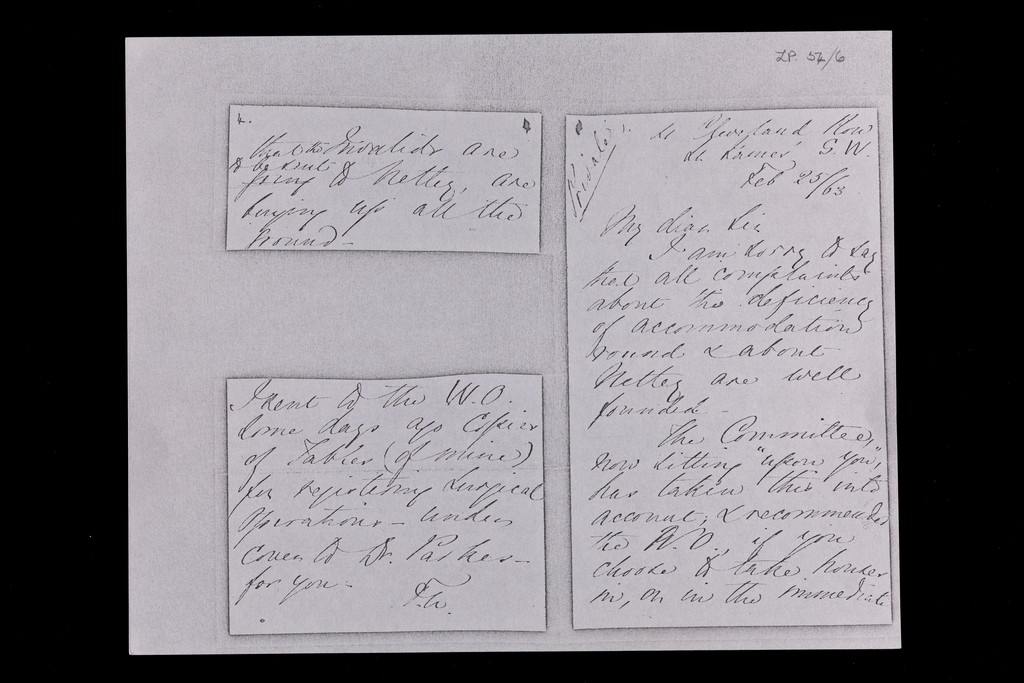 LP. 54/6
Private 1.
4 Cleveland Row
St. James' S.W.
Feb 25/63
My dear Sir
I am sorry to say
that all complaints
about the deficiency
of accommodation
round & about
Netley are well
founded -
The Committee,
now sitting "upon you",
has taken this into
account; & recommended
the W.O., if you
choose to take houses
in, or in the immediate
4.
that the Invalids are
to be sent
going to Netley, are
buying up all the
ground -
I sent to the W.O.
some days ago Copies
of Tables (of mine)
for registering Surgical
Operations - under
cover to Dr. Parkes -
for you -
F.N.